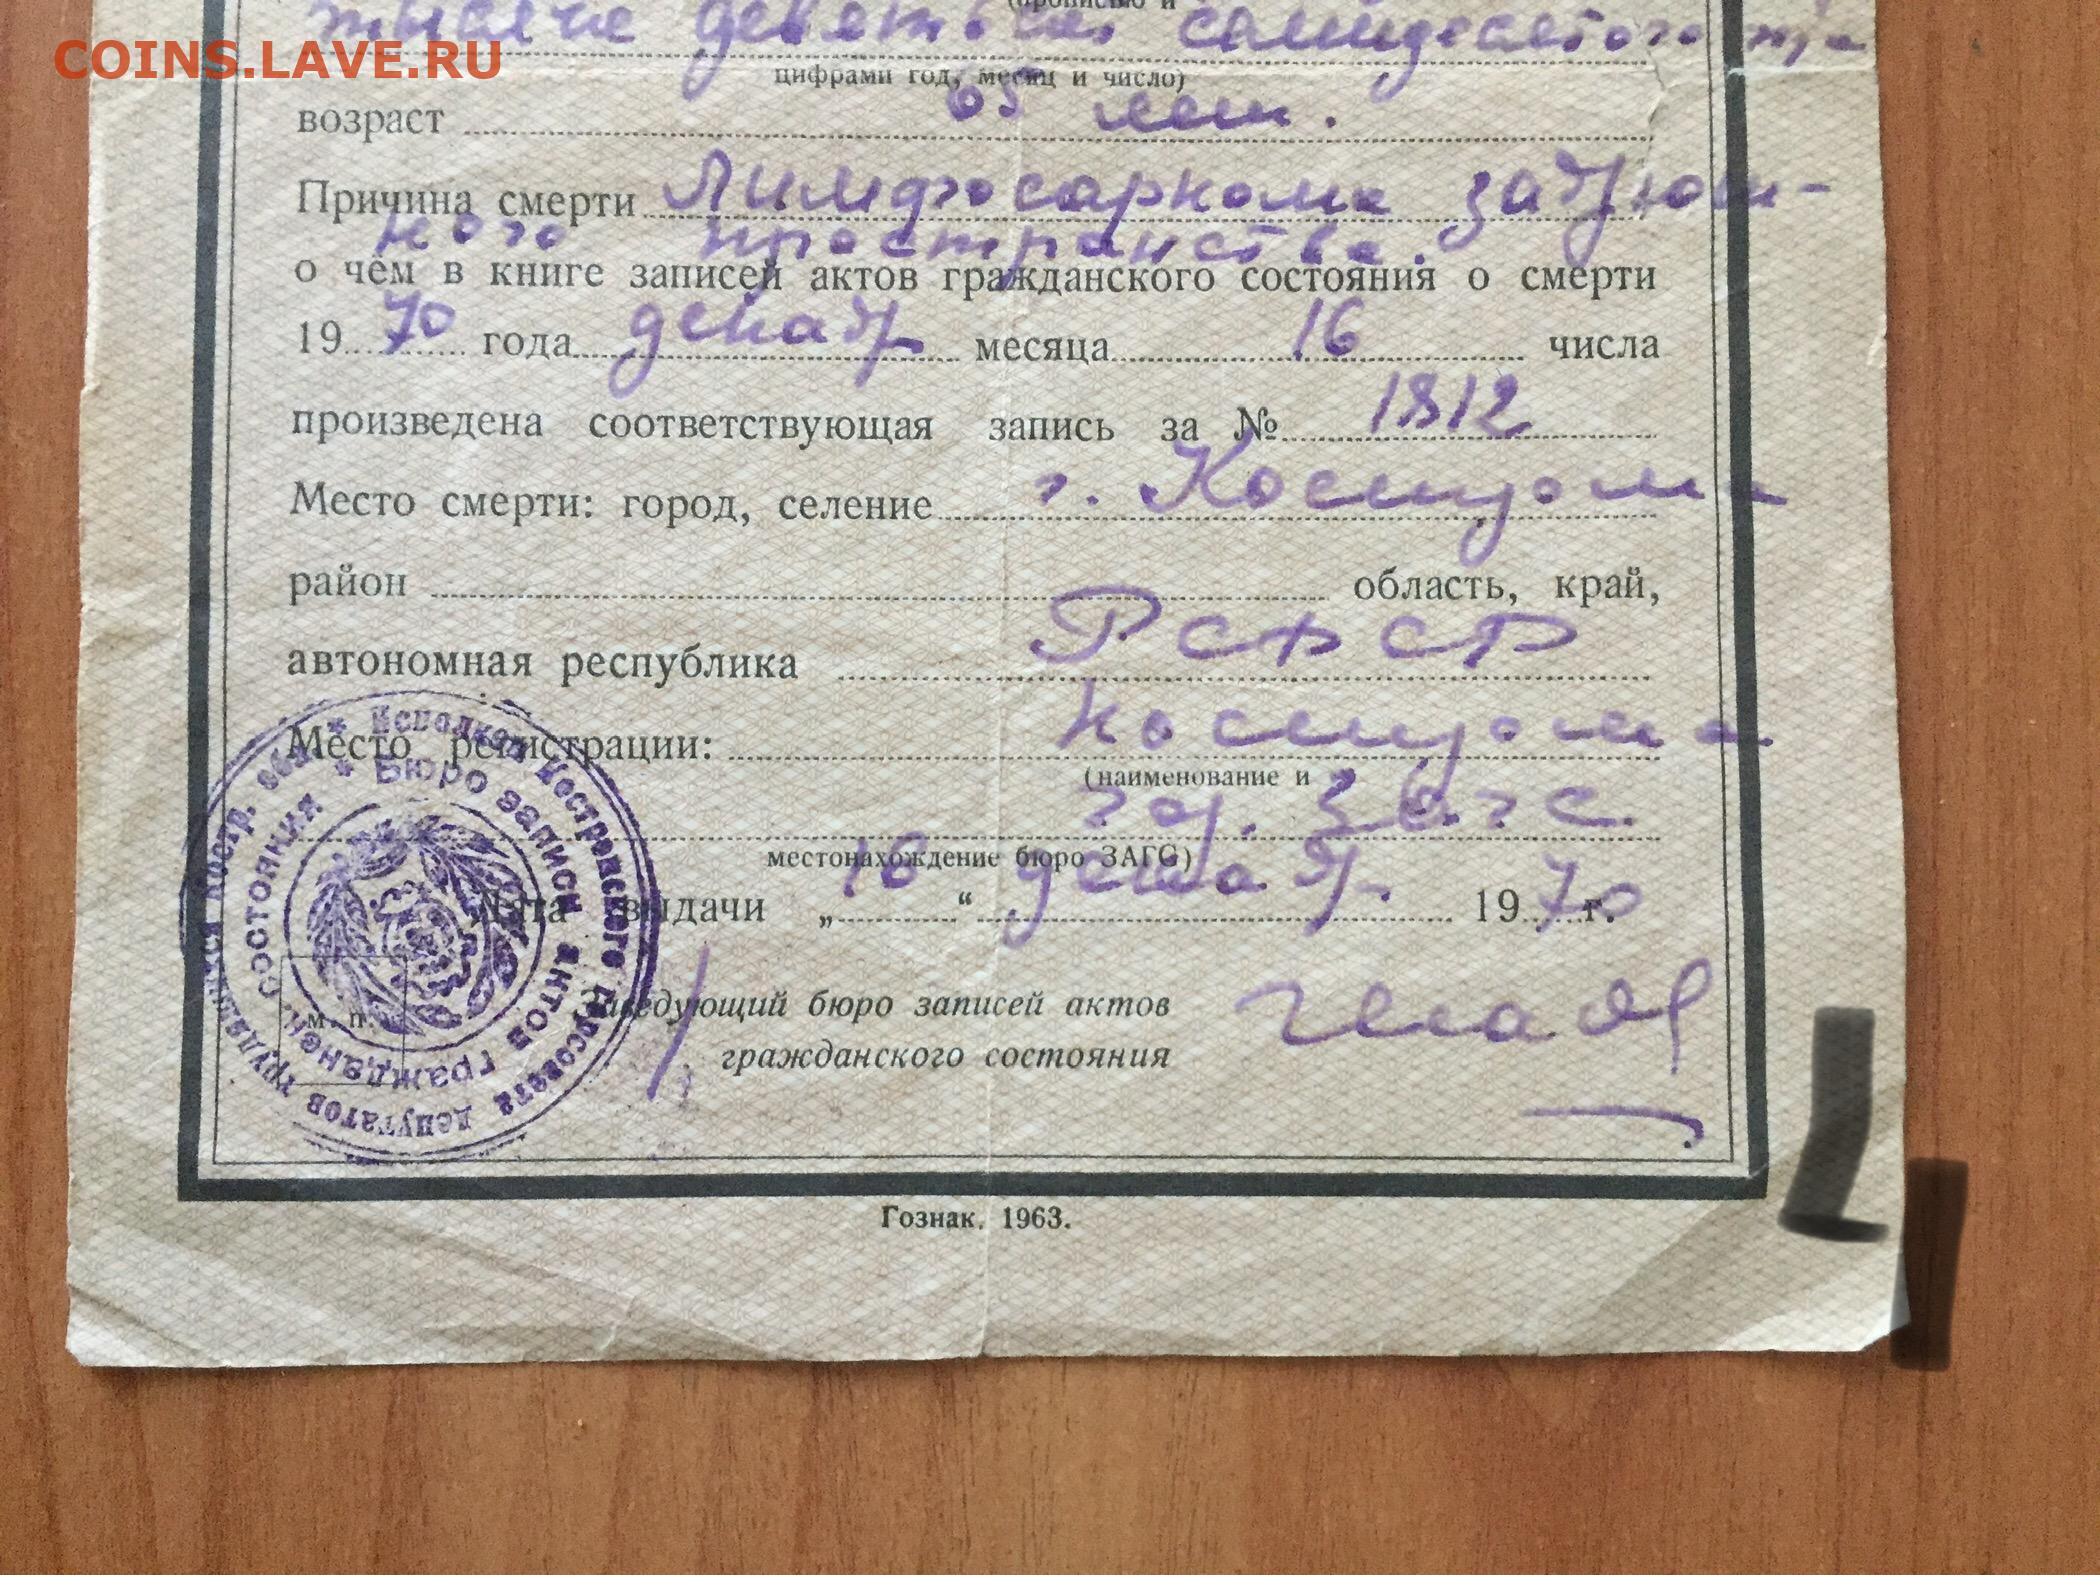 COINS.LAVE.RU
(прописью и
тысяча девятьсот семидесятого
цифрами год, месяц и число)
возраст 65 лет.
Причина смерти Лимфосаркома забрюшин-
ного пространства.
о чём в книге записей актов гражданского состояния о смерти
19 70 года декабр месяца 16 числа
произведена соответствующая запись за № 1812
Место смерти: город, селение г. Кострома
район область, край,
автономная республика РСФСР
Место регистрации: Кострома
(наименование и
гор. Загс
местонахождение бюро ЗАГС)
Дата выдачи „ 16 “ декабр. 19 70 г.
Заведующий бюро записей актов
гражданского состояния
м. п.
Исполком Костромского горсовета депутатов трудящихся Костр. обл.
Бюро записи актов гражданск. состояния
Гознак. 1963.